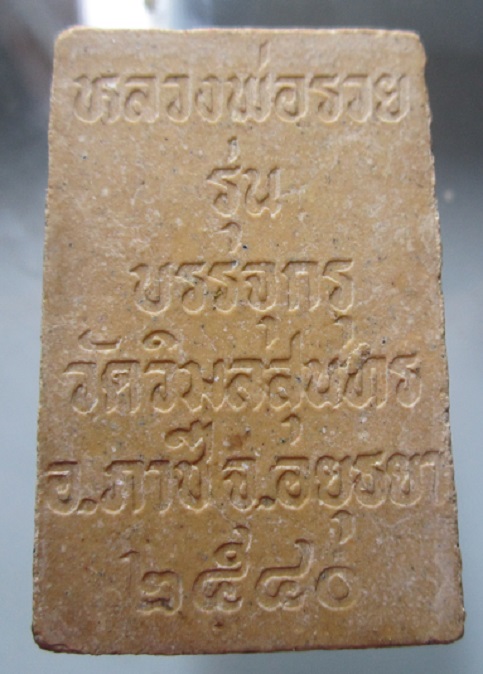 หลวงพ่อรวย
รุ่น
บรรจุกรุ
วัดวิมลสุนทร
อ.ภาชี จ.อยุธยา
๒๕๔๐